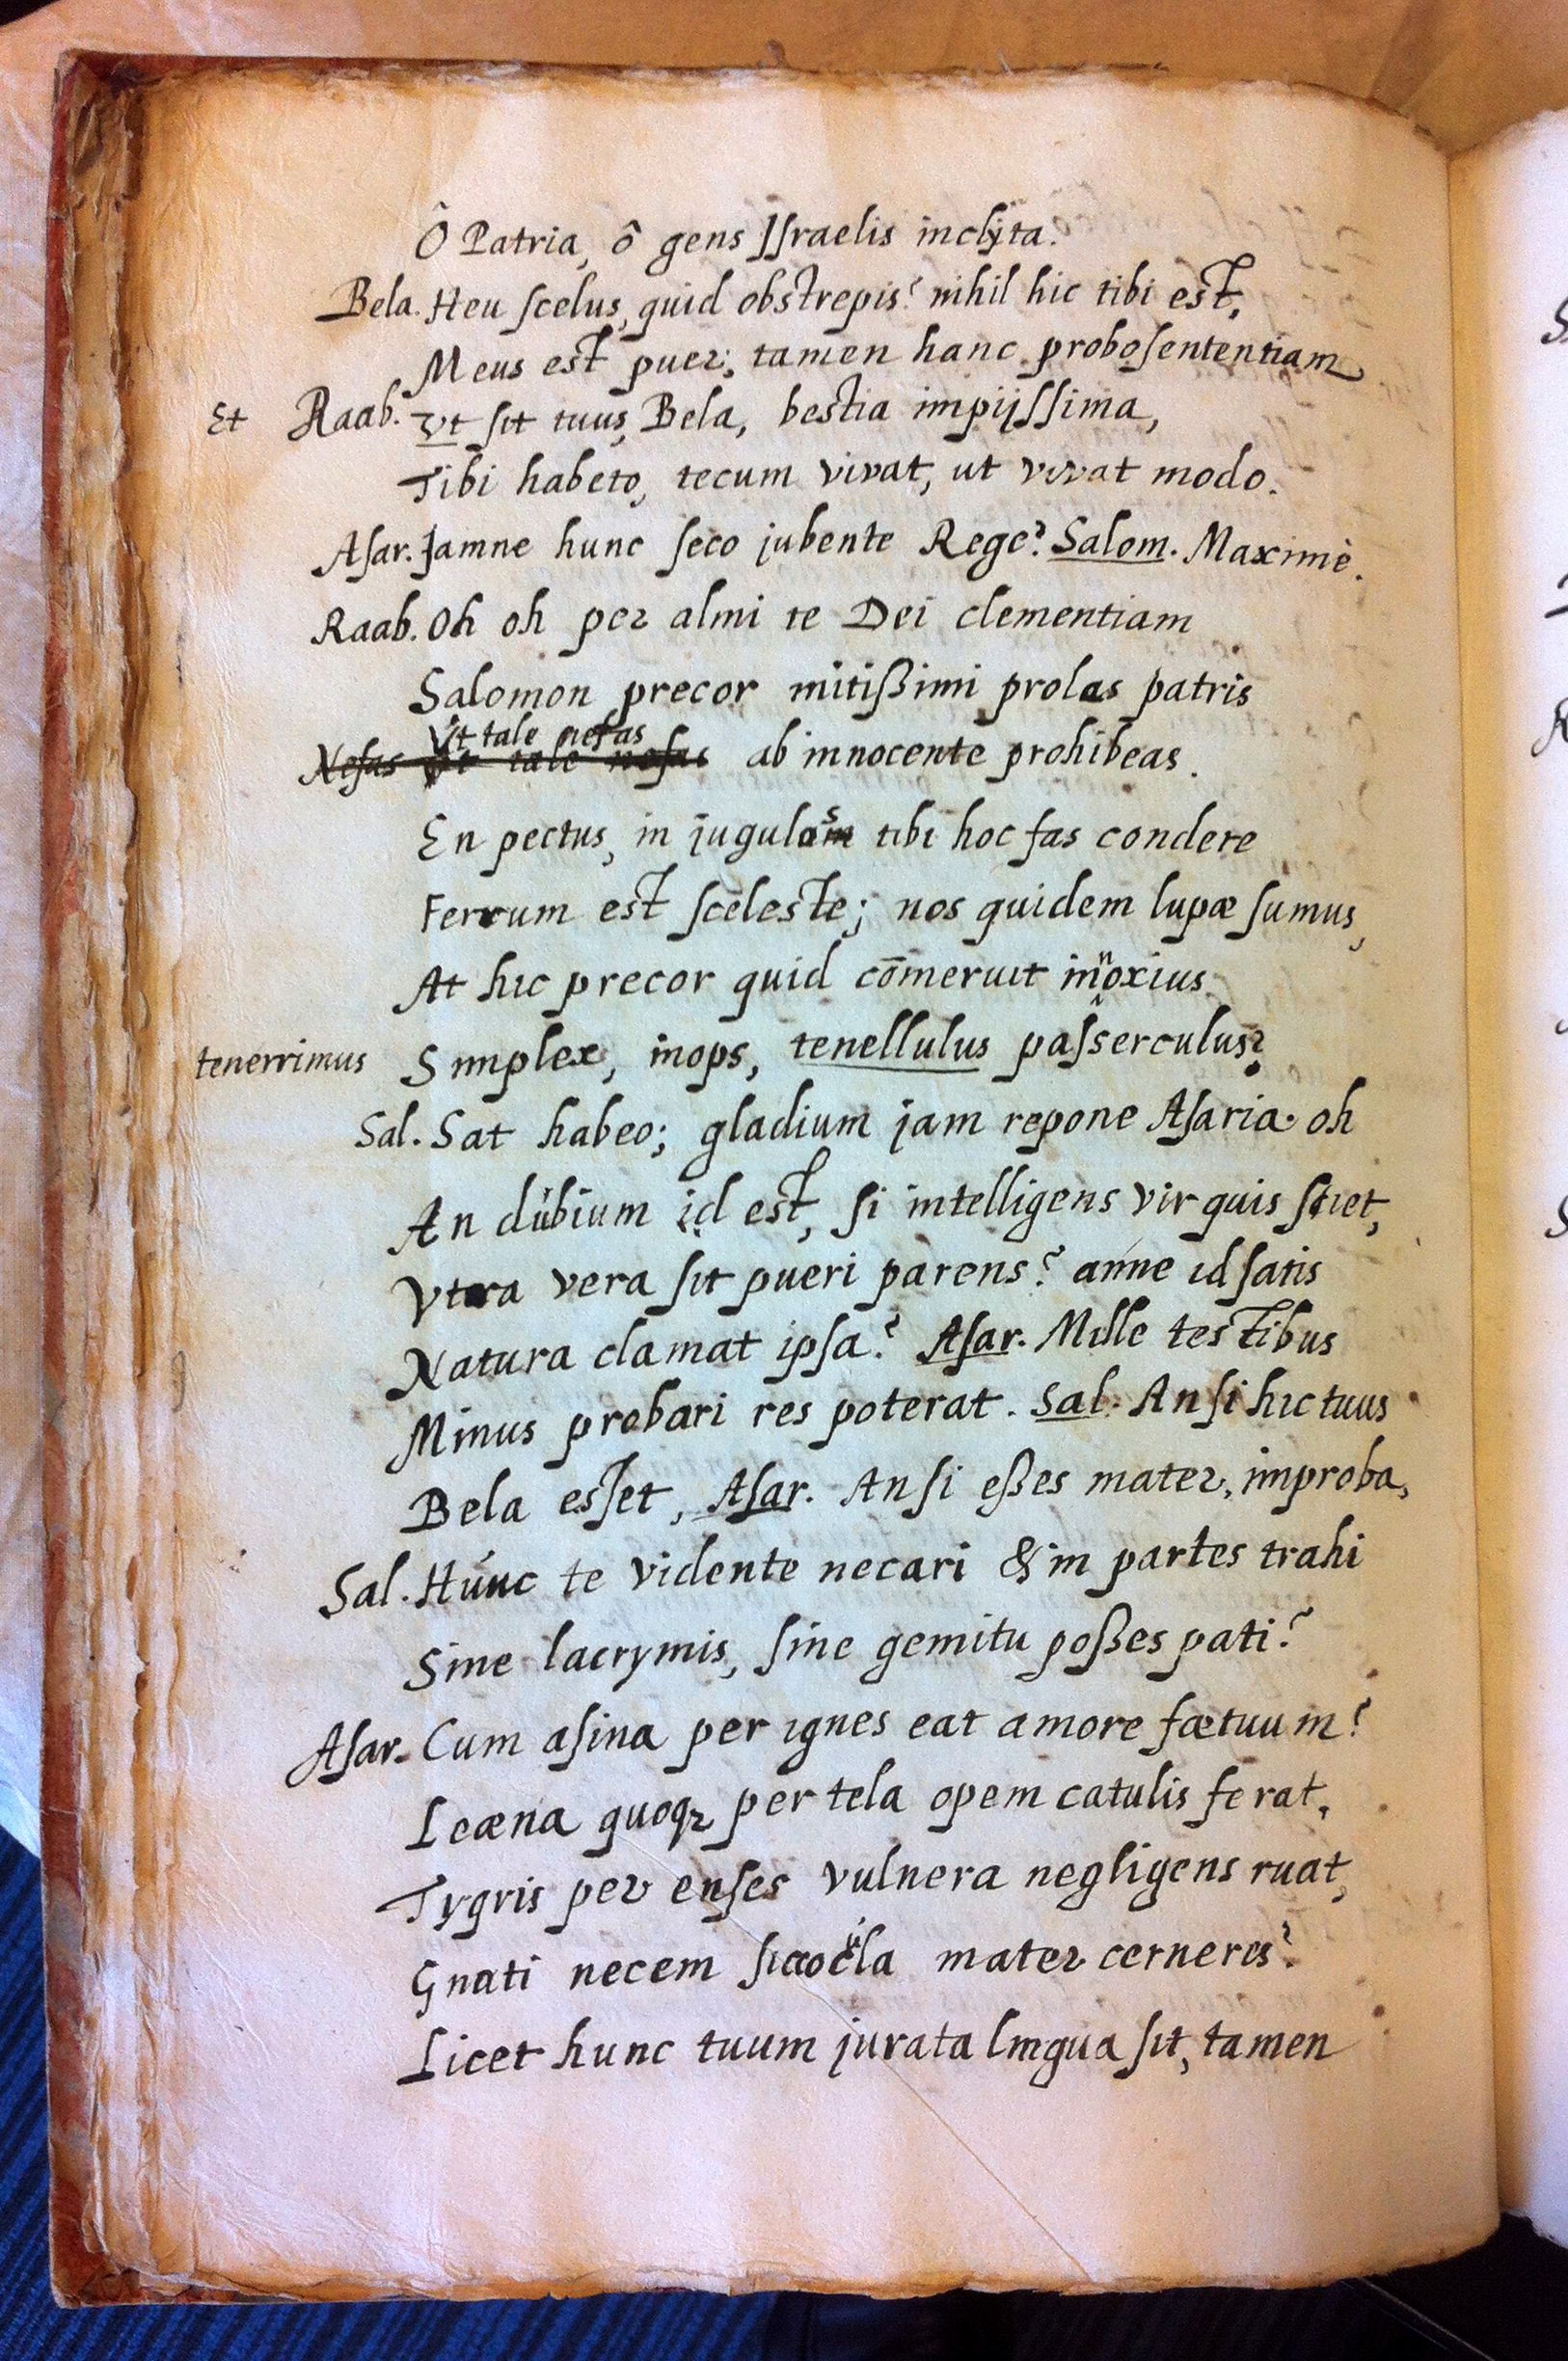 Ô Patria, ô gens Israelis inclyta.
Bela. Heu scelus, quid obstrepis? nihil hic tibi est,
Meus est puer; tamen hanc probo sententiam
Et Raab. Vt sit tuus, Bela, bestia impijssima,
Tibi habeto, tecum vivat, ut vivat modo.
Asar. Jamne hunc seco jubente Rege? Salom. Maximè.
Raab. Oh oh per almi te Dei clementiam
Salomon precor mitißimi proles patris
Vt tale nefas
Nefas Vt tale nefas ab innocente prohibeas.
En pectus, in jugulos tibi hoc fas condere
Ferrum est sceleste; nos quidem lupæ sumus,
At hic precor quid cōmeruit innoxius
tenerrimus Simplex, inops, tenellulus passerculus?
Sal. Sat habeo; gladium jam repone Asaria. oh
An dubium id est, si intelligens vir quis siet,
Vtra vera sit pueri parens? anne id satis
Natura clamat ipsa? Asar. Mille testibus
Minus probari res poterat. Sal. An si hic tuus
Bela esset, Asar. An si eßes mater, improba,
Sal. Hunc te vidente necari & in partes trahi
Sine lacrymis, sine gemitu poßes pati?
Asar. Cum asina per ignes eat amore fætuum?
Leæna quoqz per tela opem catulis ferat,
Tygris per enses vulnera negligens ruat,
Gnati necem mater cerneres?
Licet hunc tuum jurata lingua sit, tamen